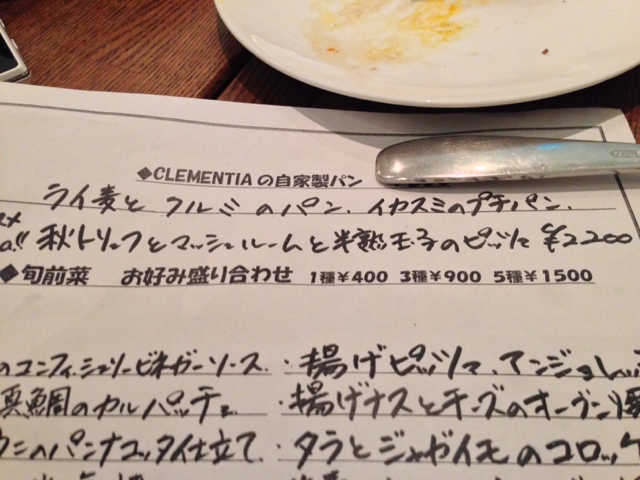 ◆CLEMENTIAの自家製パン
ライ麦と クルミ のパン、イカスミのプチパン、
秋トリュフとマッシュルームと半熟玉子のピッツァ ¥2200
◆旬前菜 お好み盛り合わせ 1種¥400 3種¥900 5種¥1500
のコンフィ、シェリービネガーソース ・揚げピッツァ、アンジョレッ
真鯛のカルパッチョ ・揚げナスとチーズのオーブン焼
ウニのパンナコッタ仕立て ・タラとジャガイモのコロッケ